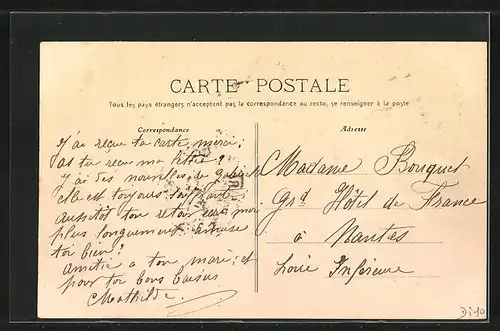 CARTE POSTALE
Tous les pays étrangers n'acceptent pas la correspondance au recto, se renseigner à la poste
Correspondance
J'ai reçu ta carte, merci;
as tu reçu ma lettre?
J'ai des nouvelles de Gabriel
elle est toujours
Aussitot ton retour
plus longuement amuse
toi bien!
Amitié a ton mari; et
pour toi bons baisers
Mathilde
Adresse
Madame Bouquet
Grd Hôtel de France
à Nantes
Loire Inférieure
Di-10